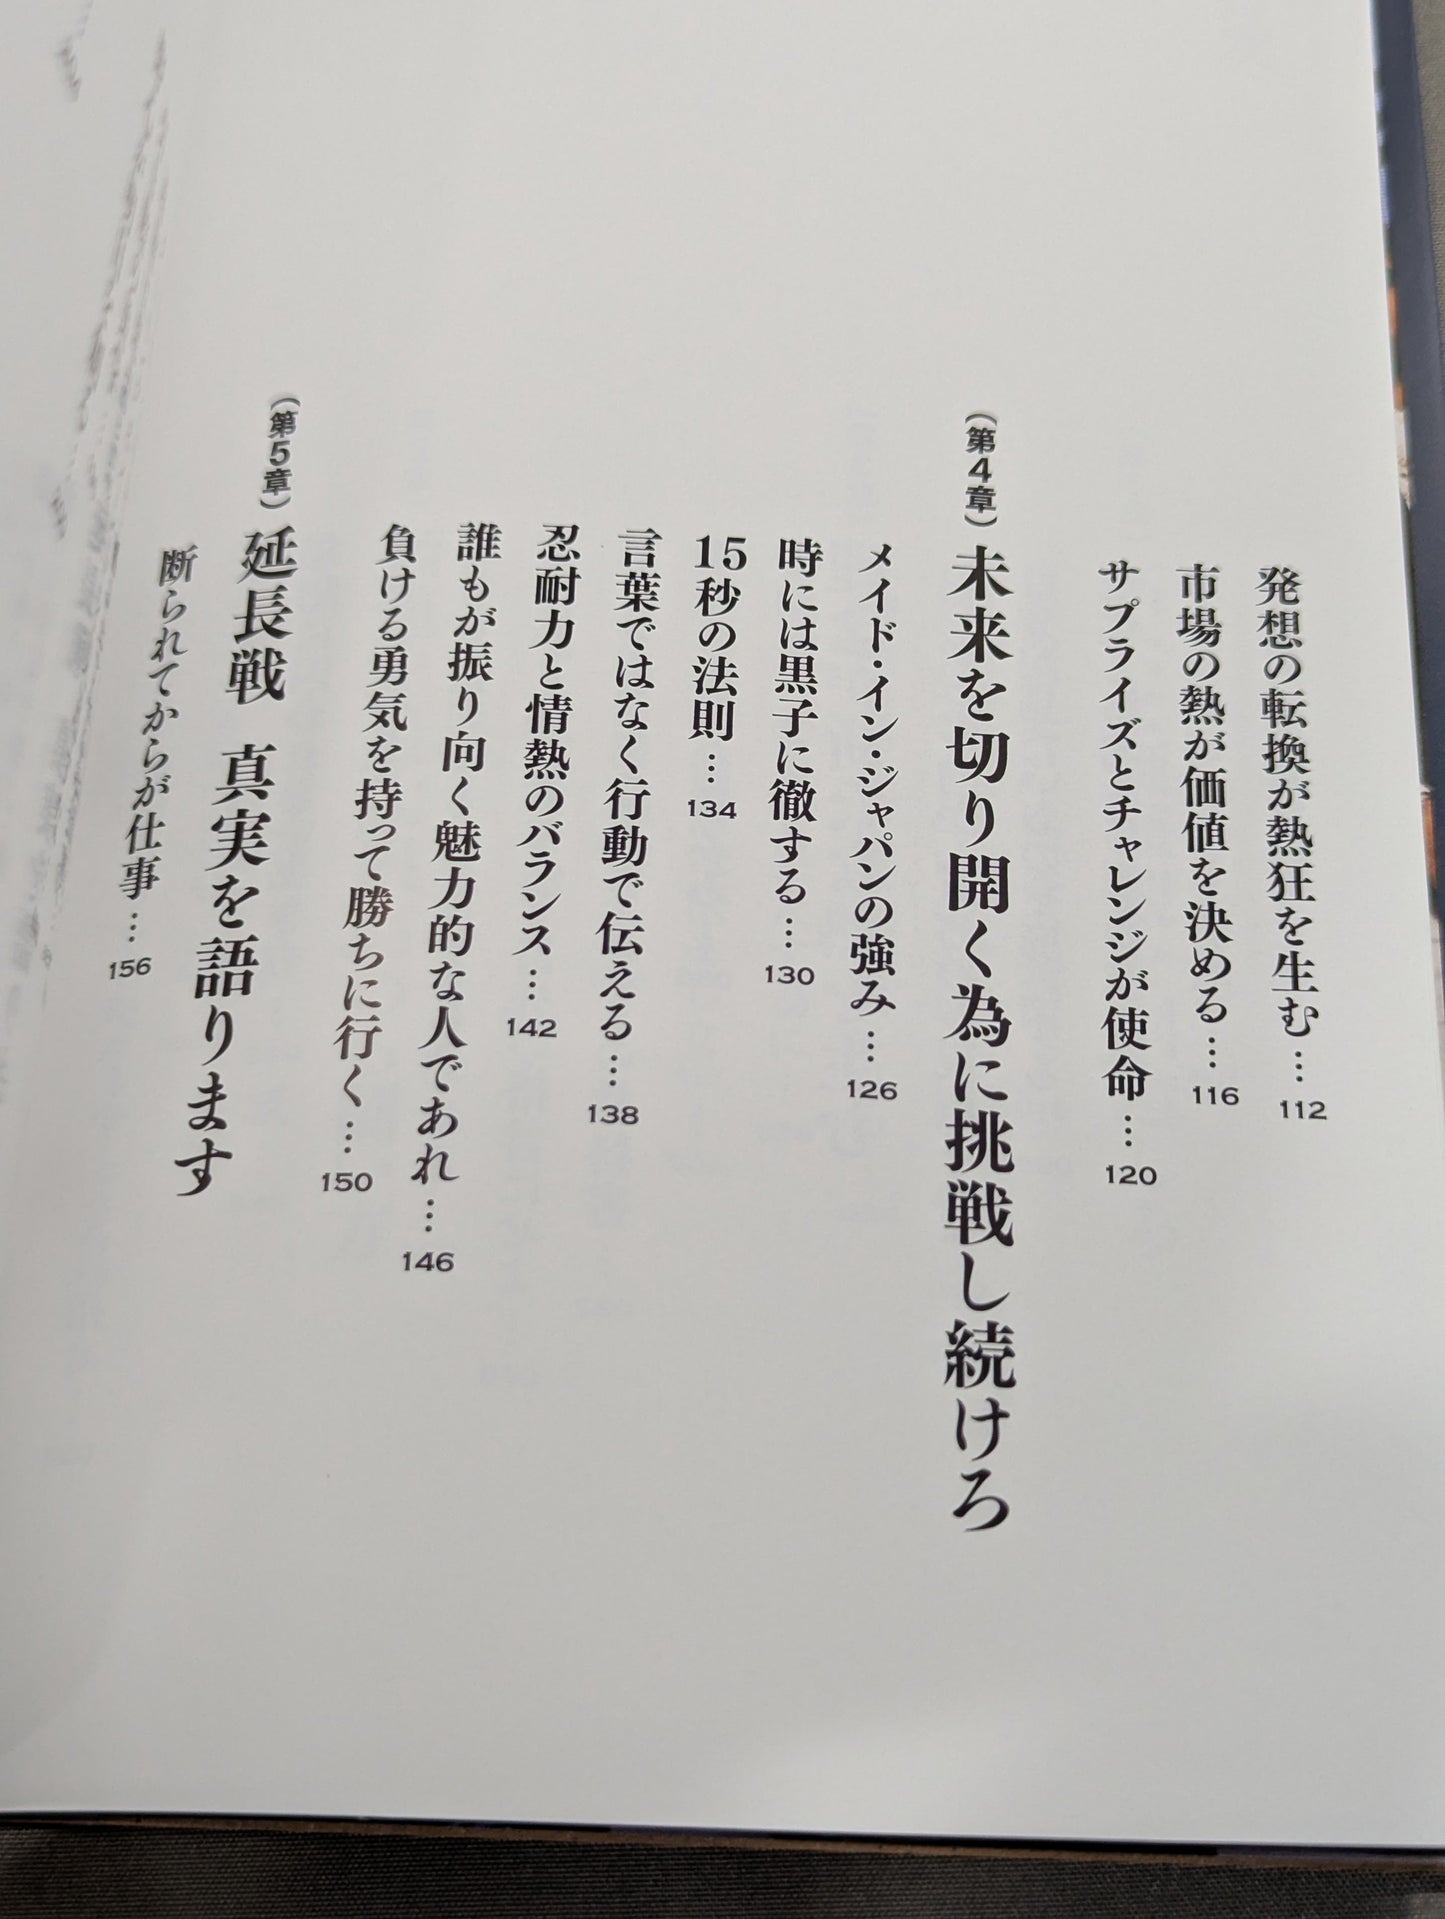 発想の転換が熱狂を生む…112
市場の熱が価値を決める…116
サプライズとチャレンジが使命…120
（第4章）未来を切り開く為に挑戦し続けろ
メイド・イン・ジャパンの強み…126
時には黒子に徹する…130
15秒の法則…134
言葉ではなく行動で伝える…138
忍耐力と情熱のバランス…142
誰もが振り向く魅力的な人であれ…146
負ける勇気を持って勝ちに行く…150
（第5章）延長戦　真実を語ります
断られてからが仕事…156